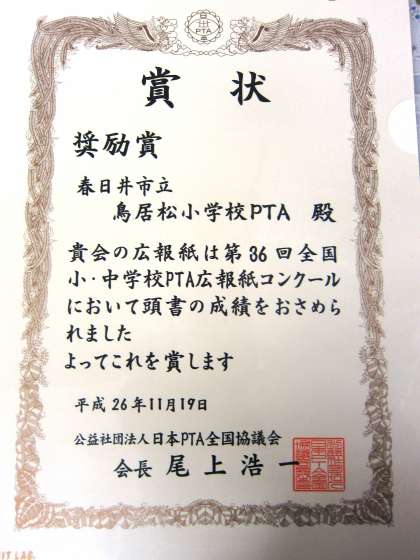 日
PTA
賞 状
奨励賞
春日井市立
鳥居松小学校PTA 殿
貴会の広報紙は第36回全国
小・中学校PTA広報紙コンクール
において頭書の成績をおさめら
れました
よってこれを賞します
平成26年11月19日
公益社団法人日本PTA全国協議会
会長 尾上浩一
IT LAB.